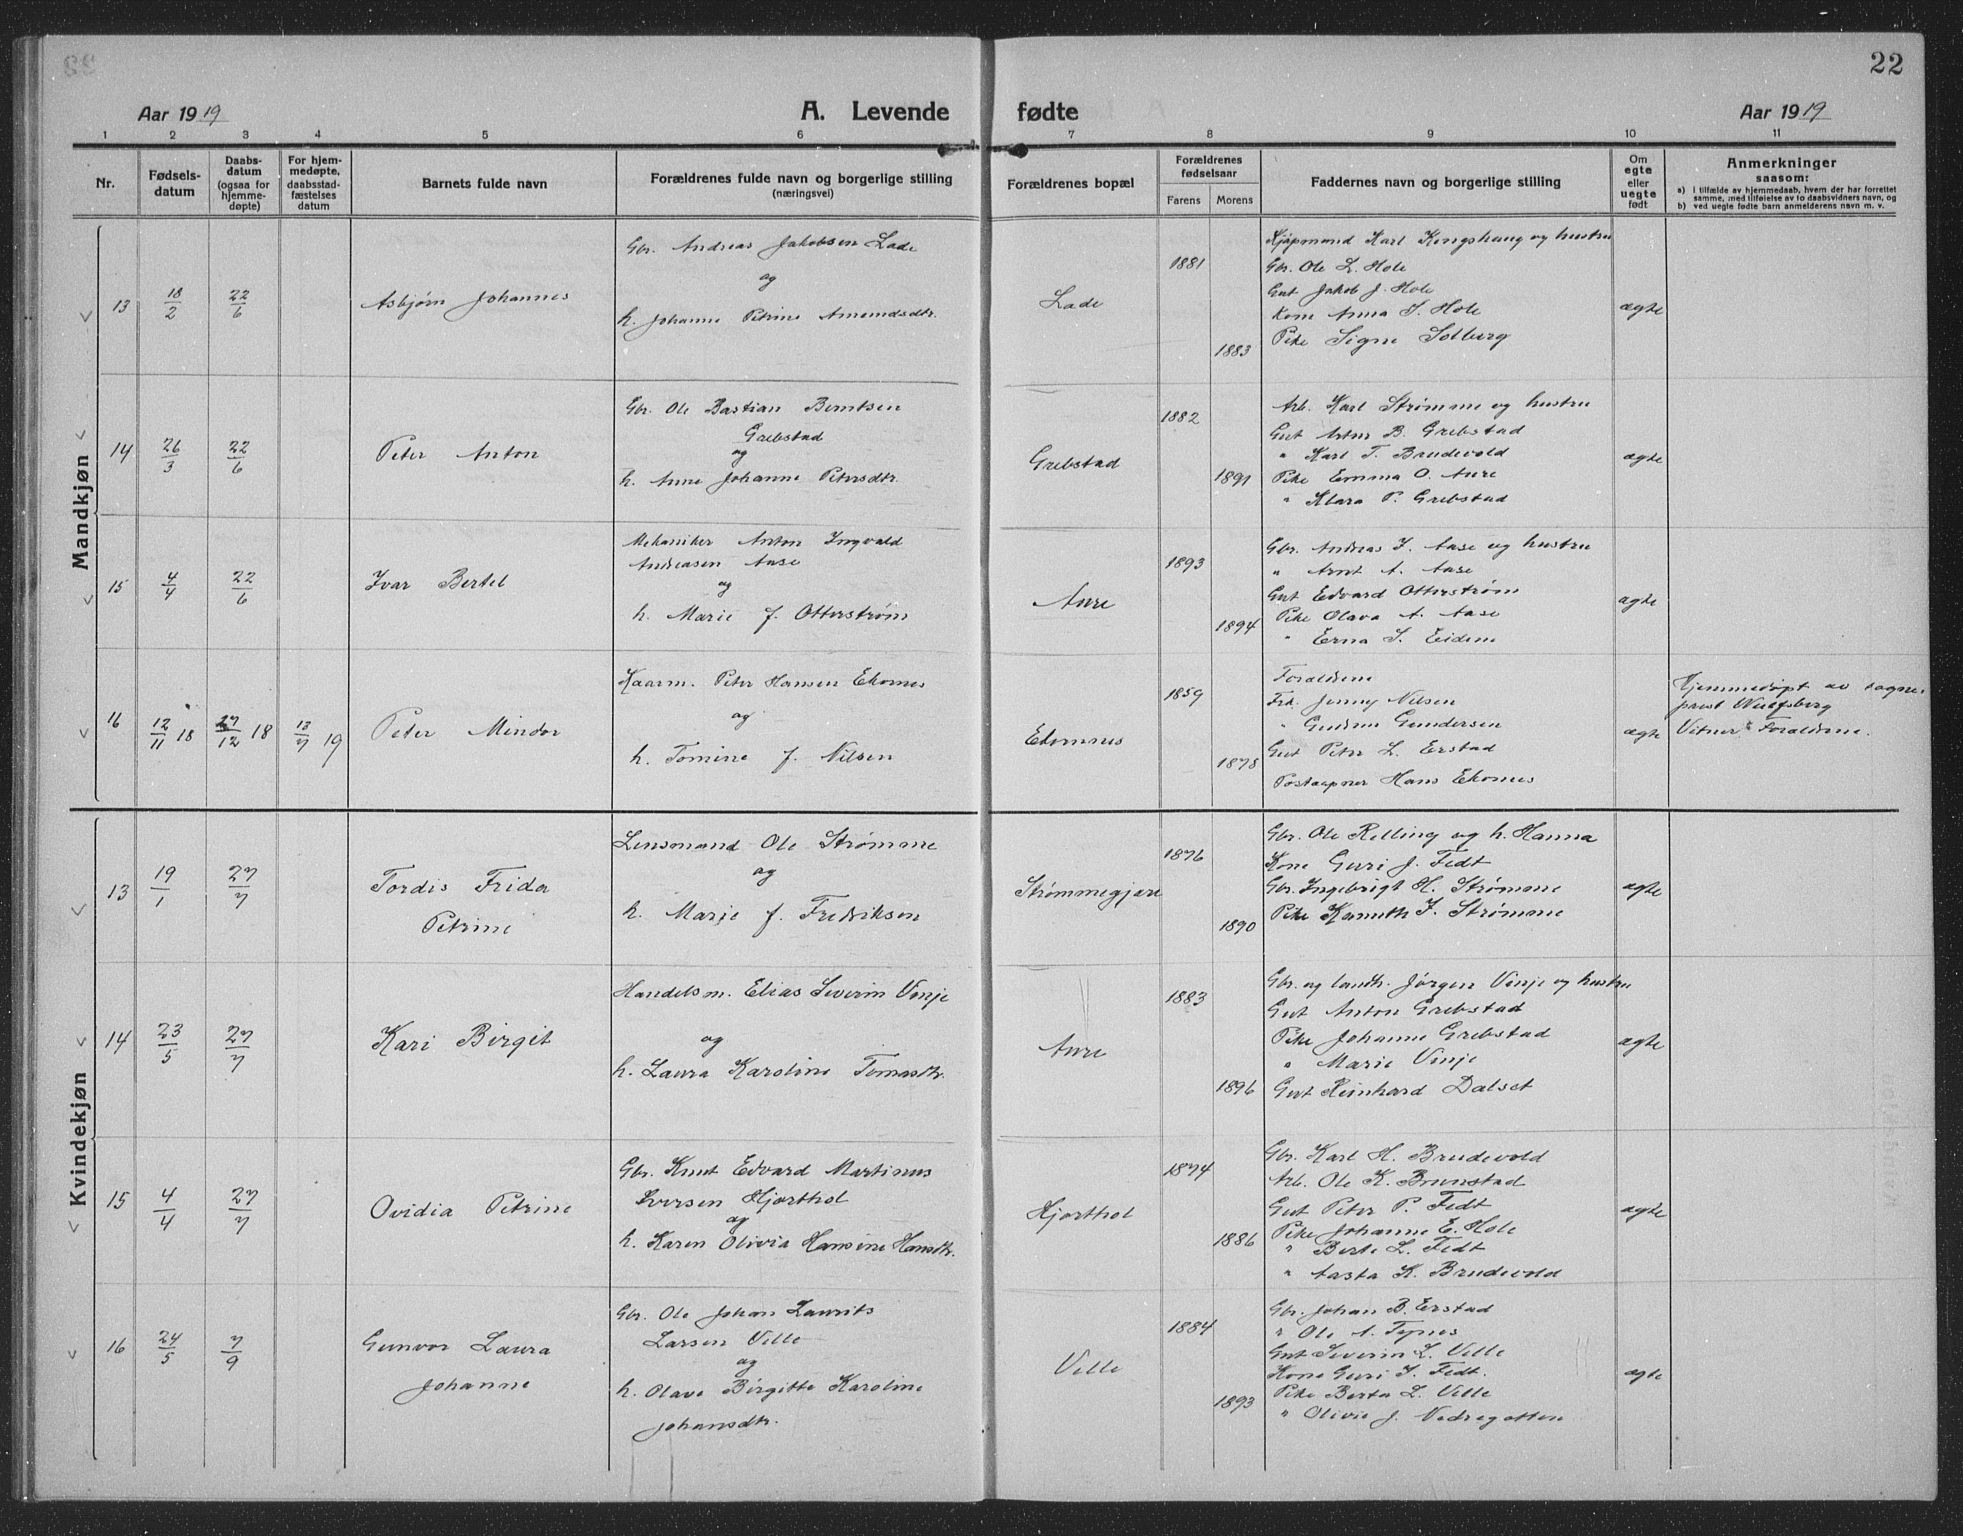 22
Aar 1919 A. Levende fødte Aar 1919
1 2 3 4 5 6 7 8 9 10 11
Nr. Fødsels-datum Daabs-datum (ogsaa for hjemme-døpte) For hjem-medøpte, daabsstad-fæstelses datum Barnets fulde navn Forældrenes fulde navn og borgerlige stilling (næringsvei) Forældrenes bopæl Forældrenes fødselsaar Farens Morens Faddernes navn og borgerlige stilling Om egte eller uegte født Anmerkninger saasom:
a) I tilfælde av hjemmedaab, hvem der har forrettet samme, med tilføielse av to daabsvidners navn, og
b) ved uegte fødte barn anmelderens navn m. v.
Mandkjøn
13 18/2 22/6 Asbjørn Johannes
Gbr. Andreas Jakobsen Lade
og
h. Johanne Petrine Amundsdtr.
Lade 1881 1883
Kjøpmand Karl Kongshaug og hustru
Gbr. Ole L. Hole
Gut Jakob J. Hole
Kone Anna I. Hole
Pike Signe Solberg
ægte
14 26/3 22/6 Peter Anton
Gbr. Ole Bastian Berntsen
Grebstad
og
h. Anne Johanne Petersdtr.
Grebstad 1882 1891
Arb. Karl Strømme og hustru
Gut Artur B. Grebstad
" Karl T. Brudevold
Pike Emma O. Aure
" Klara P. Grebstad
ægte
15 4/4 22/6 Ivar Bertel
Mekaniker Anton Ingvald
Andreasen Aase
og
h. Marie f. Otterstrøm
Aure 1893 1894
Gbr. Andreas I. Aase og hustru
" Arnt A. Aase
Gut Edvard Otterstrøm
Pike Olava A. Aase
" Erna I. Eidem
ægte
16 12/11 18 27/12 18 13/7 19 Peter Mindor
Kaarm. Peter Hansen Ekornes
og
h. Tomine f. Nilsen
Ekornnes 1859 1878
Foraldrene
Frk. Jenny Nilsen
" Gudrun Gundersen
Gut Peter L. Erstad
Postaapner Hans Ekornes
ægte
Hjemmedøpt av sogne-
prest Wulfsberg
Vitner: Foraldrene.
Kvindekjøn
13 19/1 27/7 Tordis Frida
Petrine
Lensmand Ole Strømme
og
h. Marie f. Fredriksen
Strømmegjære 1876 1890
Gbr. Ole Relling og h. Hanna
Kone Guri J. Fedt
Gbr. Ingebrigt H. Strømme
Pike I. Strømme
ægte
14 23/5 27/7 Kari Birgit
Handelsm. Elias Severin Vinje
og
h. Laura Karoline Tomasdtr.
Aure 1883 1896
Gbr. og landh. Jørgen Vinje og hustru
Gut Anton Grebstad
Pike Johanne Grebstad
" Marie Vinje
Gut Reinhard Dalset
ægte
15 4/4 27/7 Ovidia Petrine
Gbr. Knut Edvard Martinus
Iversen Hjorthol
og
h. Karen Olivia Hansine Hansdtr.
Hjorthol 1874 1886
Gbr. Karl H. Brudevold
Arb. Ole K. Brunstad
Gut Peter P. Fedt
Pike Johanne E. Hole
" Berte L. Fedt
" Aasta K. Brudevold
ægte
16 24/5 7/9 Gunvor Laura
Johanne
Gbr. Ole Johan Laurits
Larsen Velle
og
h. Olave Birgitte Karoline
Johansdtr.
Velle 1884 1893
Gbr. Johan B. Erstad
" Ole A. Tynes
Gut Severin L. Velle
Kone Guri I. Fedt.
Pike Berta L. Velle
" Olivie J. Nedregotten
ægte